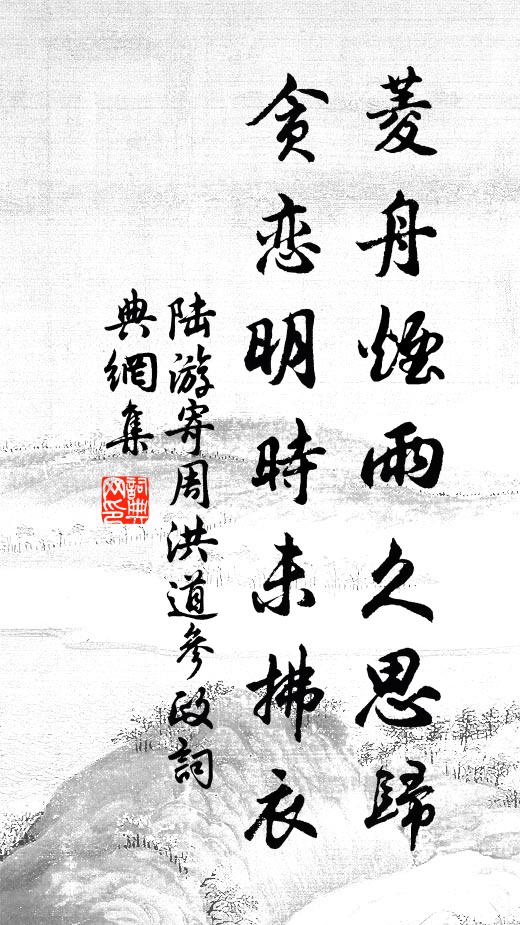 菱舟煙雨久思歸
貪恋明時未拂衣
陆游寄周洪道參政詞
典網集
詞典网印